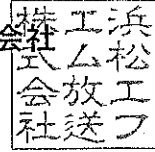 浜松エフ
エム放送
株式会社
会社